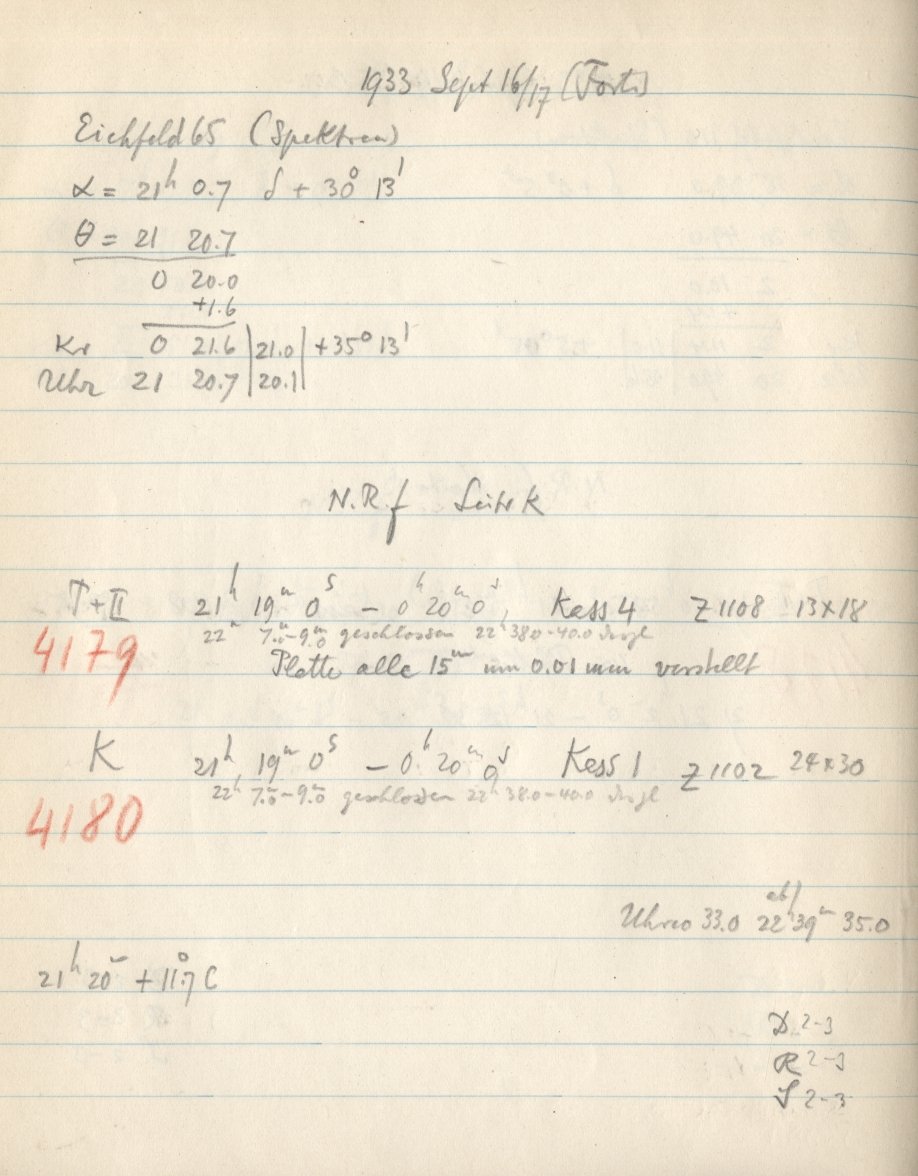 1933 Sept 16/17 (Forts)
Eichfeld 65 (Spektren)
α = 21h 0.7 δ + 30° 13'
θ = 21 20.7
0 20.0
+1.6
Kr 0 21.6 | 21.0 | +35° 13'
Uhr 21 20.7 | 20.1 |
N.R.f Seite K
T+II 21h 19m 0s – 0h 20m 0s, Kass 4 Z 1108 13×18
4179 22h 7.m0–9.m0 geschlossen 22h 38.0–40.0 desgl
Platte alle 15m um 0.01 mm verstellt
K 21h 19m 0s – 0h 20m 0s Kass 1 Z 1102 24×30
4180 22h 7.m0–9.m0 geschlossen 22h 38.0–40.0 desgl
ab/
33.0 22h 39m 35.0
21h 20m + 11°.7 C
D 2–3
R 2–3
S 2–3